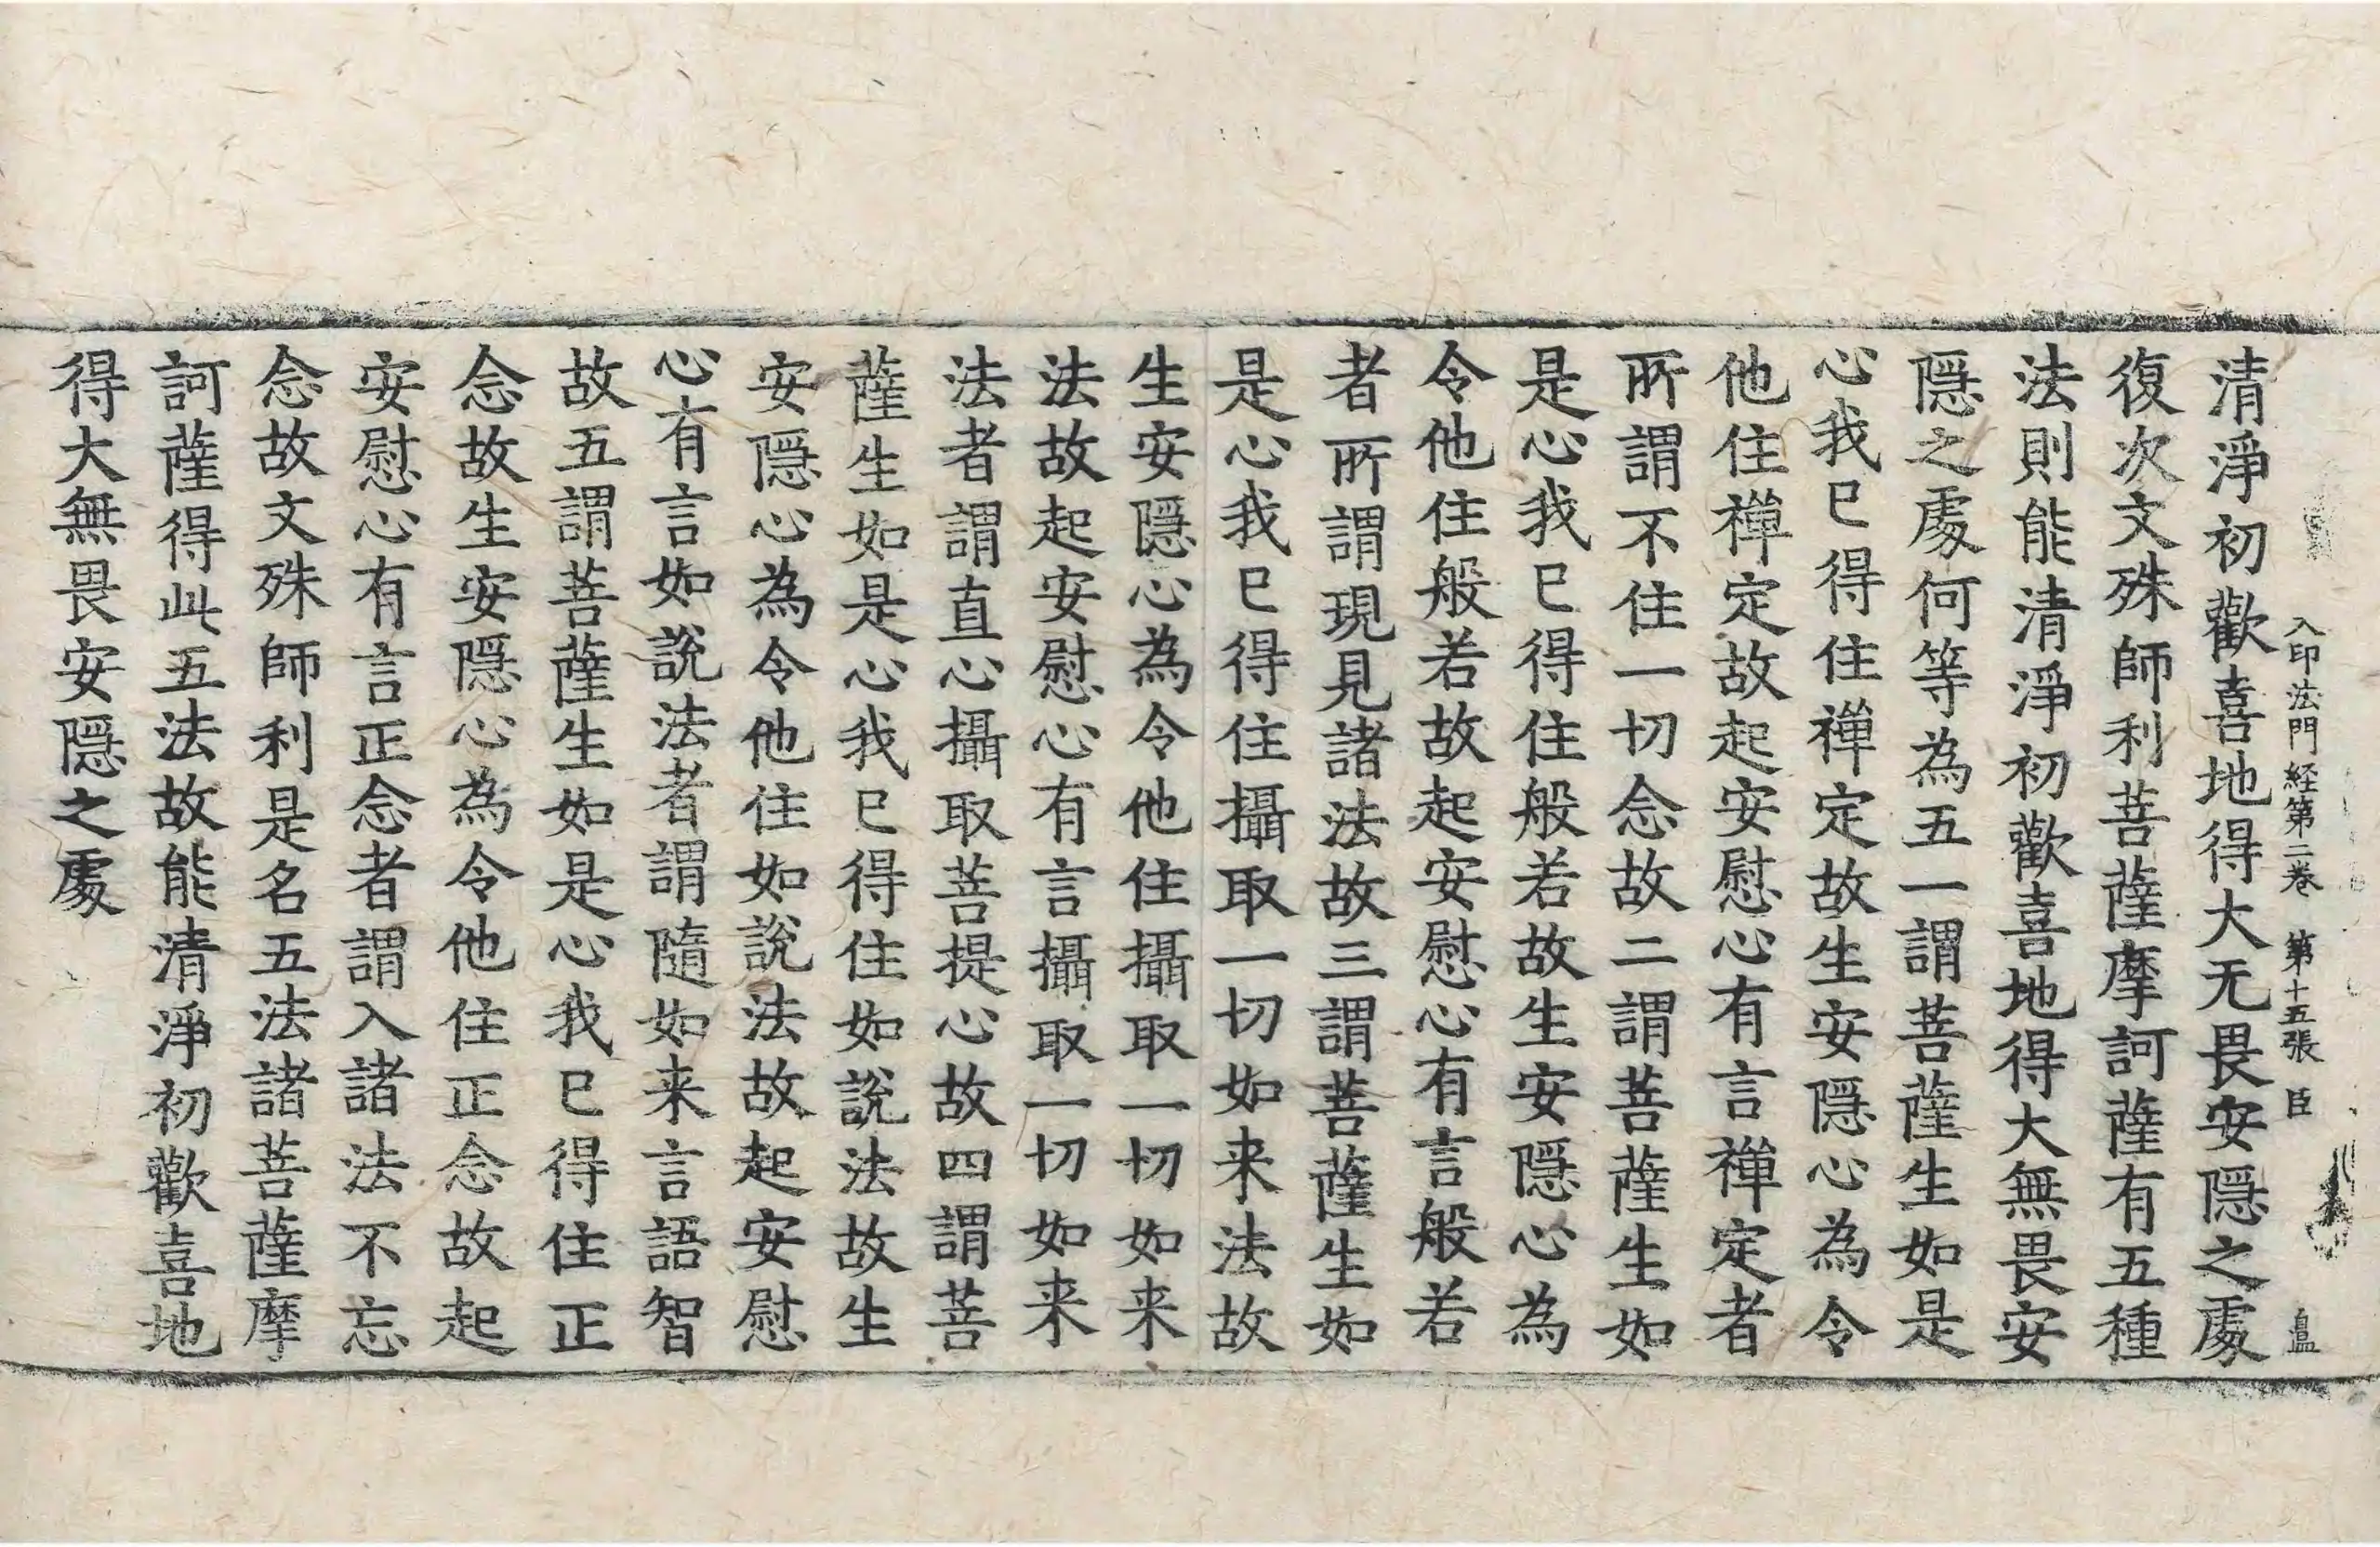 入印法門経第二卷 第十五張 臣
清淨初歡喜地得大无畏安隱之處
復次文殊師利菩薩摩訶薩有五種
法則能清淨初歡喜地得大無畏安
隱之處何等為五一謂菩薩生如是
心我已得住禪定故生安隱心為令
他住禪定故起安慰心有言禪定者
所謂不住一切念故二謂菩薩生如
是心我已得住般若故生安隱心為
令他住般若故起安慰心有言般若
者所謂現見諸法故三謂菩薩生如
是心我已得住攝取一切如来法故
生安隱心為令他住攝取一切如来
法故起安慰心有言攝取一切如来
法者謂直心攝取菩提心故四謂菩
薩生如是心我已得住如說法故生
安隱心為令他住如說法故起安慰
心有言如說法者謂隨如来言語智
故五謂菩薩生如是心我已得住正
念故生安隱心為令他住正念故起
安慰心有言正念者謂入諸法不忘
念故文殊師利是名五法諸菩薩摩
訶薩得此五法故能清淨初歡喜地
得大無畏安隱之處